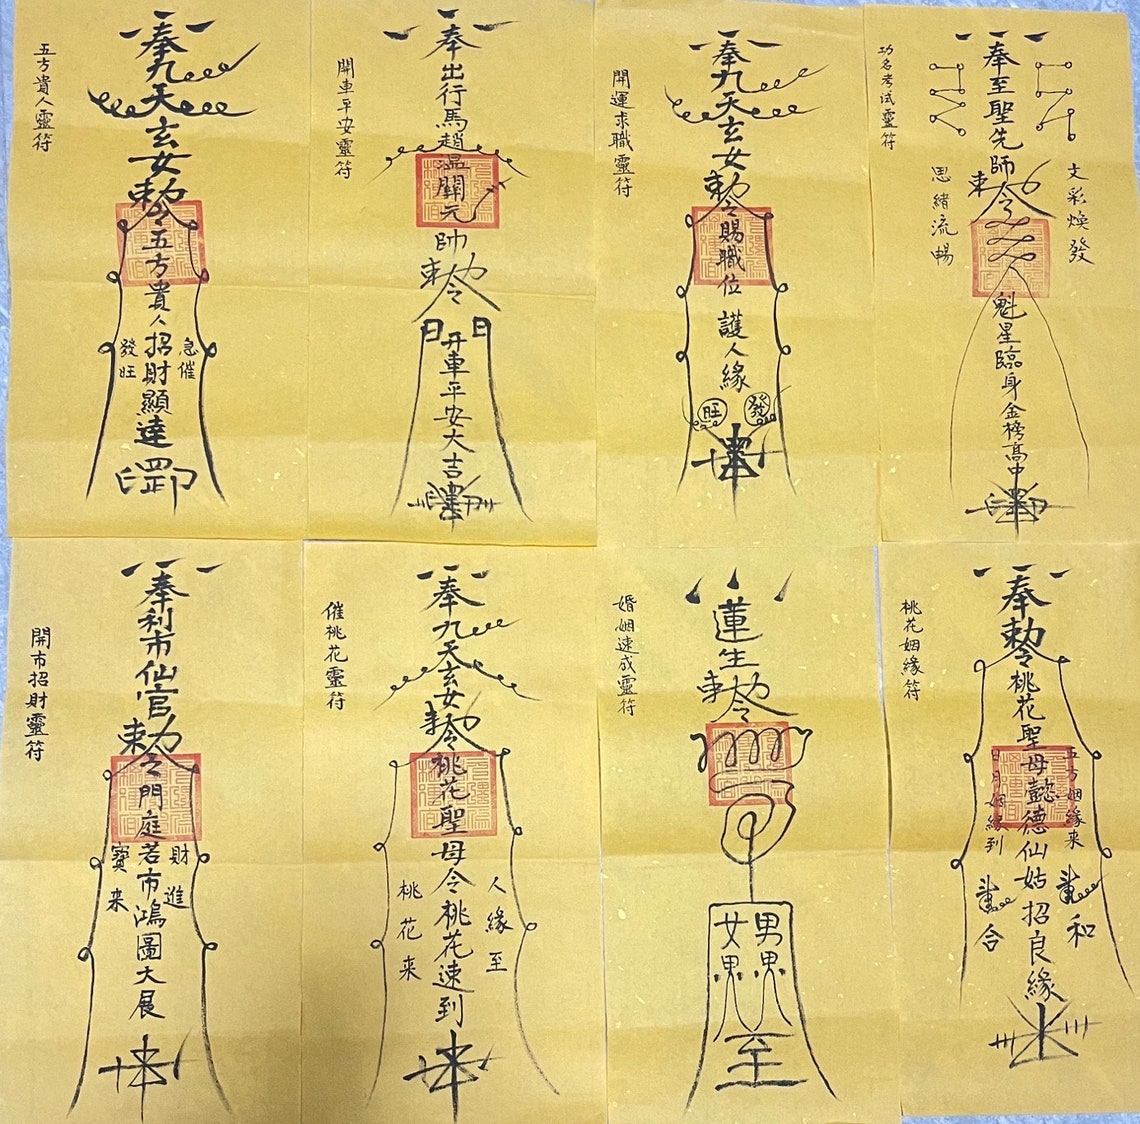 五方貴人靈符
奉九天玄女勅令五方貴人招財顯達
急催
發旺
開車平安靈符
奉出行馬趙溫關元帥勅令
開車平安大吉
開運求職靈符
奉九天玄女勅令賜職位護人緣
旺 發
功名考試靈符
奉至聖先師勅令
文彩煥發
思緒流暢
魁星臨身金榜高中
開市招財靈符
奉利市仙官勅令門庭若市鴻圖大展
財進
寶來
催桃花靈符
奉九天玄女勅令桃花聖母令桃花速到
人緣至
桃花来
婚姻速成靈符
蓮生勅令
男
女
至
桃花姻緣符
奉勅令桃花聖母懿德仙姑招良緣
五方姻緣来
日月姻緣到
和
合